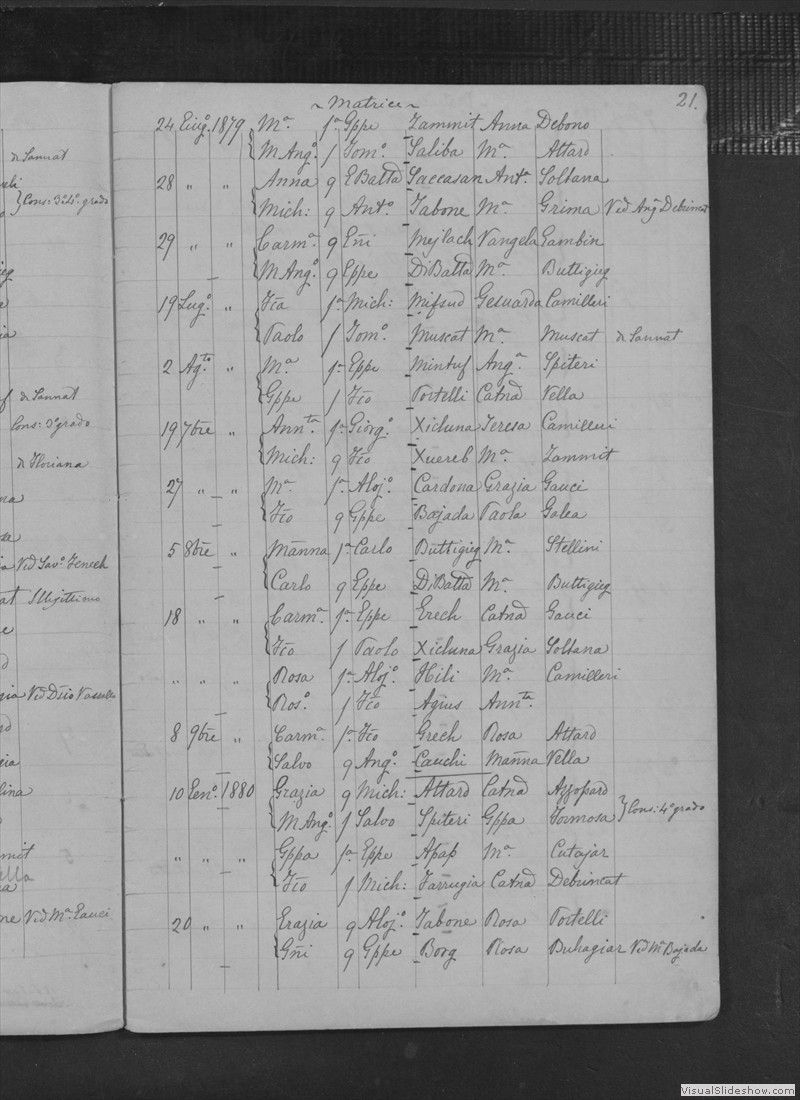 ~ Matrice ~ 21.
24 Giug.º 1879 Mª fª Gppe Zammit Anna Debono
M Angº f Tomº Saliba Mª Attard
28 " " Anna q GBatta Saccasan Antª Soltana
Mich: q Antº Tabone Mª Grima Ved Angº Debrincat
29 " " Carmª q Gñi Mejlach Vangela Gambin
M Angº q Gppe DiBatta Mª Buttigieg
19 Lugº " Fco fª Mich: Mifsud Gesuarda Camilleri
Paolo f Tomº Muscat Mª Muscat di Sannat
2 Agto " Mª fª Gppe Mintuf Angª Spiteri
Gppe f Fco Portelli Catna Vella
19 7bre " Annta fª Giorgº Xicluna Teresa Camilleri
Mich: q Fco Xuereb Mª Zammit
27 " " Mª fª Alojº Cardona Grazia Gauci
Fco q Gppe Bajada Paola Galea
5 8bre " Manna fª Carlo Buttigieg Mª Stellini
Carlo q Gppe DiBatta Mª Buttigieg
18 " " Carmª fª Gppe Grech Catna Gauci
Fco f Paolo Xicluna Grazia Soltana
" " " Rosa fª Alojº Hili Mª Camilleri
Rosº f Fco Agius Annta
8 9bre " Carmª fª Fco Grech Rosa Attard
Salvo q Angº Cauchi Manna Vella
10 Genº 1880 Grazia q Mich: Attard Catna Azzopard
M Angº f Salvo Spiteri Gppa Formosa } Cons: 4º grado
" " " Gppa fª Gppe Apap Mª Cutajar
Fco f Mich: Farrugia Catna Debrincat
20 " " Grazia q Alojº Tabone Rosa Portelli
Gñi q Gppe Borg Rosa Buhagiar Ved Mª Bajada
di Sannat
Cons: 3º 4º grado
di Sannat
Cons: 3º grado
di Floriana
Ved Savº Zerech
Illegittimo
Ved
Ved Mª Gauci
VisualSlideshow.com